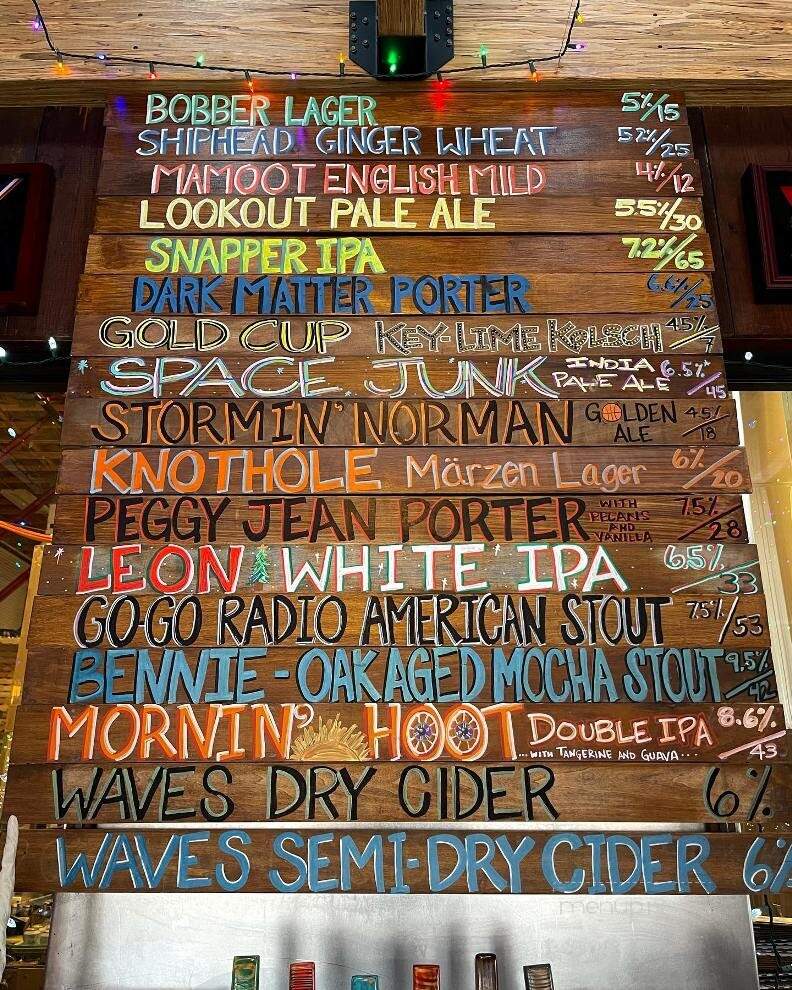 BOBBER LAGER 5%/15
SHIPHEAD GINGER WHEAT 5.2%/25
MAMOOT ENGLISH MILD 4%/12
LOOKOUT PALE ALE 5.5%/30
SNAPPER IPA 7.2%/65
DARK MATTER PORTER 6.6%/25
GOLD CUP KEY-LIME KOLSCH 4.5%/7
SPACE JUNK INDIA PALE ALE 6.5%/45
STORMIN' NORMAN GOLDEN ALE 4.5%/18
KNOTHOLE Märzen Lager 6%/20
PEGGY JEAN PORTER WITH PECANS AND VANILLA 7.5%/28
LEON WHITE IPA 6.5%/33
GO-GO RADIO AMERICAN STOUT 7.5%/53
BENNIE - OAK AGED MOCHA STOUT 9.5%/42
MORNIN' HOOT DOUBLE IPA 8.6%/43
...WITH TANGERINE AND GUAVA...
WAVES DRY CIDER 6%
WAVES SEMI-DRY CIDER 6%